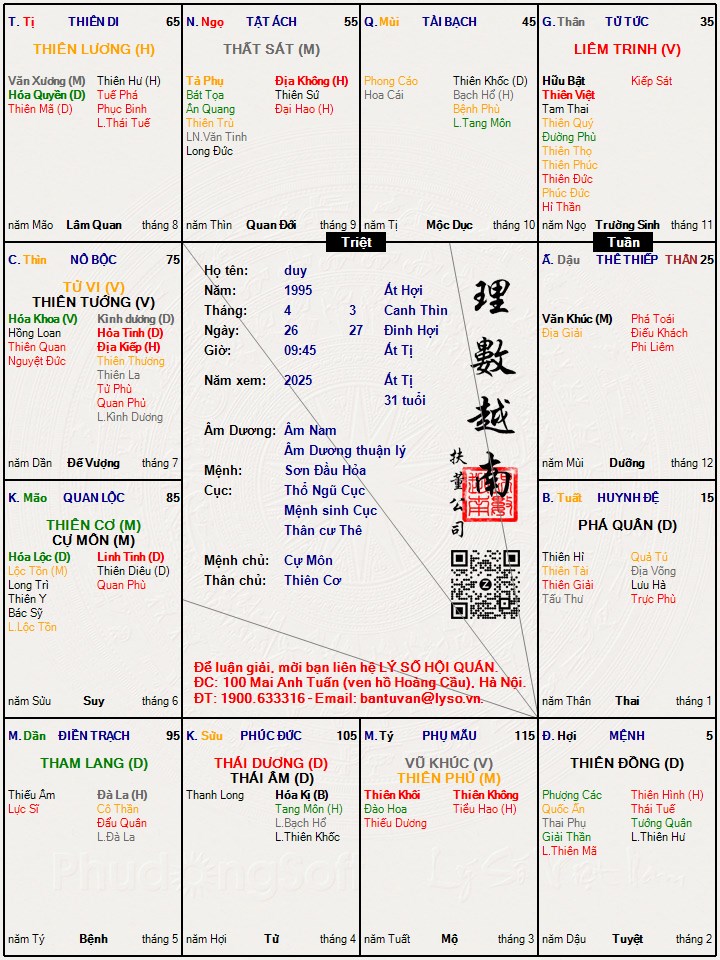 T. Tị THIÊN DI 65
THIÊN LƯƠNG (H)
Văn Xương (M) Thiên Hư (H)
Hóa Quyền (D) Tuế Phá
Thiên Mã (D) Phục Binh
L.Thái Tuế
năm Mão Lâm Quan tháng 8
N. Ngọ TẬT ÁCH 55
THẤT SÁT (M)
Tả Phụ Địa Không (H)
Bát Tọa Thiên Sứ
Ân Quang Đại Hao (H)
Thiên Trù
LN.Văn Tinh
Long Đức
năm Thìn Quan Đới tháng 9
Q. Mùi TÀI BẠCH 45
Phong Cáo Thiên Khốc (D)
Hoa Cái Bạch Hổ (H)
Bệnh Phù
L.Tang Môn
năm Tị Mộc Dục tháng 10
G. Thân TỬ TỨC 35
LIÊM TRINH (V)
Hữu Bật Kiếp Sát
Thiên Việt
Tam Thai
Thiên Quý
Đường Phù
Thiên Thọ
Thiên Phúc
Thiên Đức
Phúc Đức
Hỉ Thần
năm Ngọ Trường Sinh tháng 11
Triệt
Tuần
C. Thìn NÔ BỘC 75
TỬ VI (V)
THIÊN TƯỚNG (V)
Hóa Khoa (V) Kình dương (D)
Hồng Loan Hỏa Tinh (D)
Thiên Quan Địa Kiếp (H)
Nguyệt Đức Thiên Thương
Thiên La
Tử Phù
Quan Phủ
L.Kình Dương
năm Dần Đế Vượng tháng 7
Họ tên: duy
Năm: 1995 Ất Hợi
Tháng: 4 3 Canh Thìn
Ngày: 26 27 Đinh Hợi
Giờ: 09:45 Ất Tị
Năm xem: 2025 Ất Tị
31 tuổi
Âm Dương: Âm Nam
Âm Dương thuận lý
Mệnh: Sơn Đầu Hỏa
Cục: Thổ Ngũ Cục
Mệnh sinh Cục
Thân cư Thê
Mệnh chủ: Cự Môn
Thân chủ: Thiên Cơ
理數越南
扶董公司
Để luận giải, mời bạn liên hệ LÝ SỐ HỘI QUÁN.
ĐC: 100 Mai Anh Tuấn (ven hồ Hoàng Cầu), Hà Nội.
ĐT: 1900.633316 - Email: bantuvan@lyso.vn.
Ấ. Dậu THÊ THIẾP THÂN 25
Văn Khúc (M) Phá Toái
Địa Giải Điếu Khách
Phi Liêm
năm Mùi Dưỡng tháng 12
K. Mão QUAN LỘC 85
THIÊN CƠ (M)
CỰ MÔN (M)
Hóa Lộc (D) Linh Tinh (D)
Lộc Tồn (M) Thiên Diêu (D)
Long Trì Quan Phù
Thiên Y
Bác Sỹ
L.Lộc Tồn
năm Sửu Suy tháng 6
B. Tuất HUYNH ĐỆ 15
PHÁ QUÂN (D)
Thiên Hỉ Quả Tú
Thiên Tài Địa Võng
Thiên Giải Lưu Hà
Tấu Thư Trực Phù
năm Thân Thai tháng 1
M. Dần ĐIỀN TRẠCH 95
THAM LANG (D)
Thiếu Âm Đà La (H)
Lực Sĩ Cô Thần
Đẩu Quân
L.Đà La
năm Tý Bệnh tháng 5
K. Sửu PHÚC ĐỨC 105
THÁI DƯƠNG (D)
THÁI ÂM (D)
Thanh Long Hóa Kị (B)
Tang Môn (H)
L.Bạch Hổ
L.Thiên Khốc
năm Hợi Tử tháng 4
M. Tý PHỤ MẪU 115
VŨ KHÚC (V)
THIÊN PHỦ (M)
Thiên Khôi Thiên Không
Đào Hoa Tiểu Hao (H)
Thiếu Dương
năm Tuất Mộ tháng 3
Đ. Hợi MỆNH 5
THIÊN ĐỒNG (D)
Phượng Các Thiên Hình (H)
Quốc Ấn Thái Tuế
Thai Phụ Tướng Quân
Giải Thần L.Thiên Hư
L.Thiên Mã
năm Dậu Tuyệt tháng 2